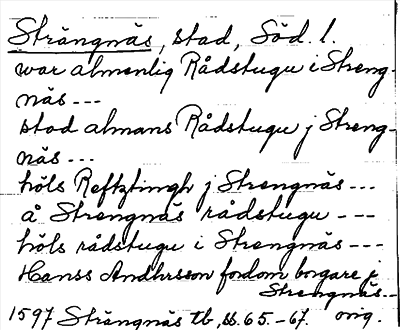 Strängnäs, stad, Söd. l.
war almenlig Rådstugu i Streng-
näs ---
stod almans Rådstugu j Streng-
näs ---
höls Reffztingh j Strengnäs ---
å Strengnäs rådstugu ---
höls rådstugu i Strengnäs ---
Hanss Andhrsson fordom borgare j
Strengnäs --
1597 Strängnäs tb, ss. 65-67. orig.